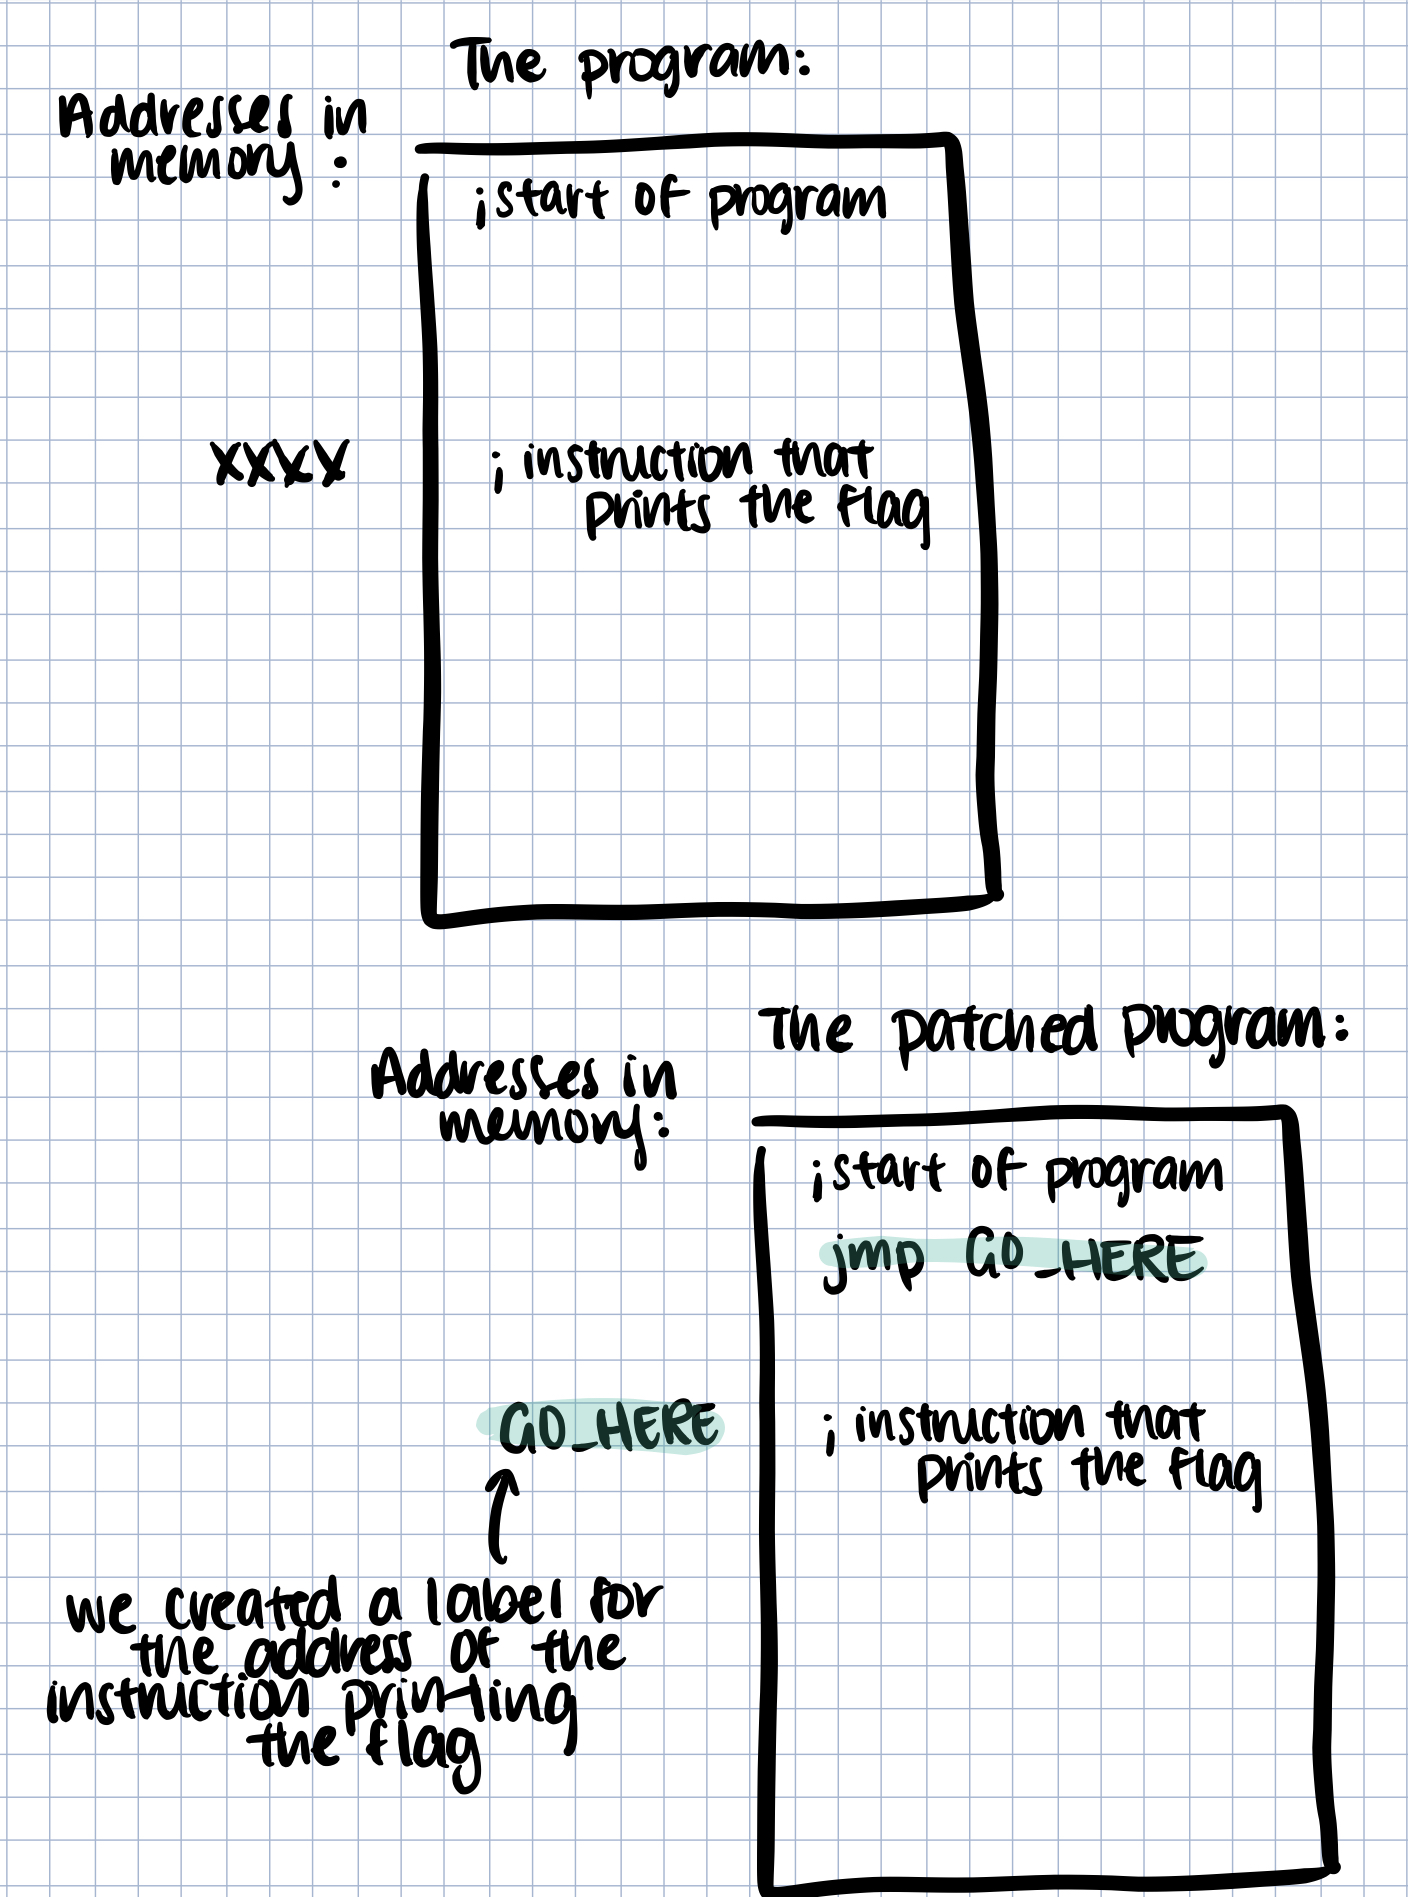 The program:
Addresses in
memory :
;start of program
XXXX
; instruction that
prints the flag
The patched program:
Addresses in
memory:
;start of program
jmp GO_HERE
GO_HERE
; instruction that
prints the flag
we created a label for
the address of the
instruction printing
the flag